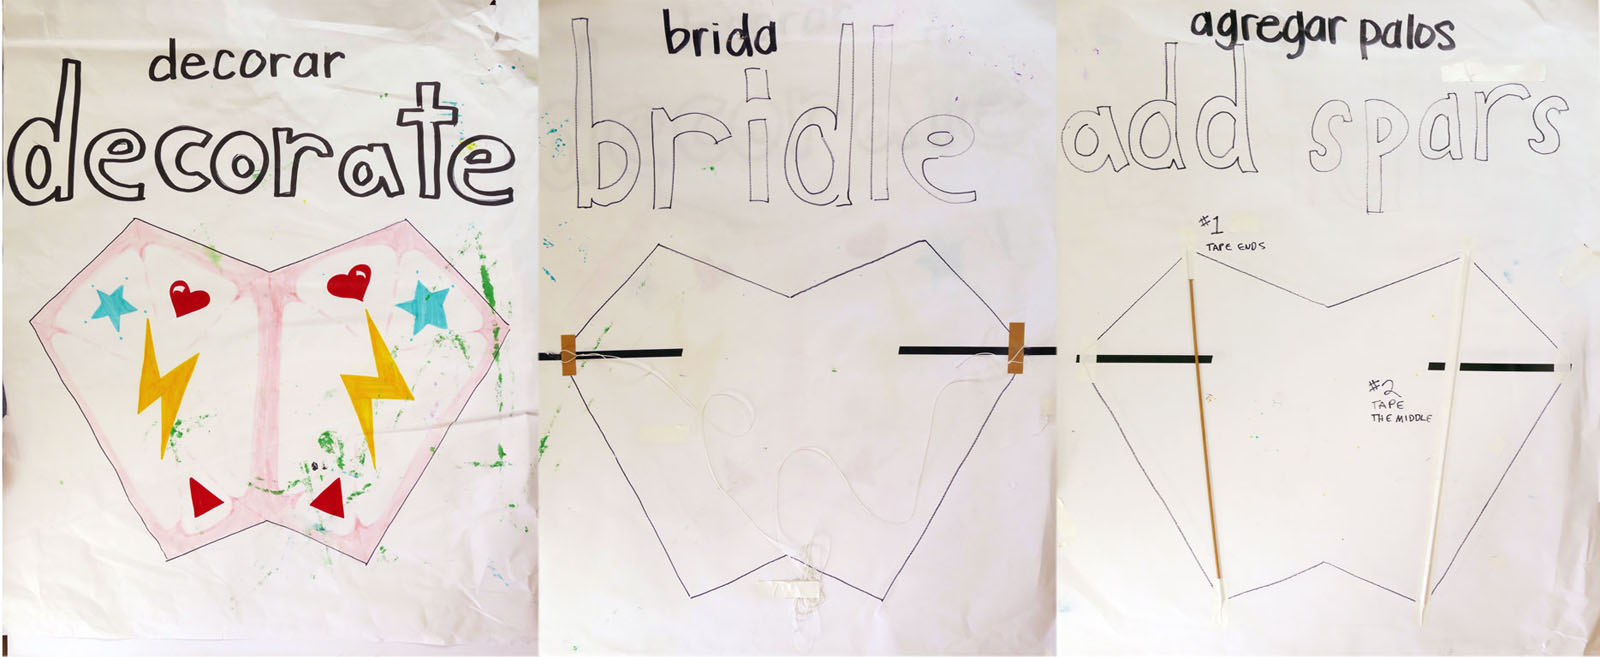 decorar
decorate
brida
bridle
agregar palos
add spars
#1
TAPE ENDS
#2
TAPE
THE MIDDLE